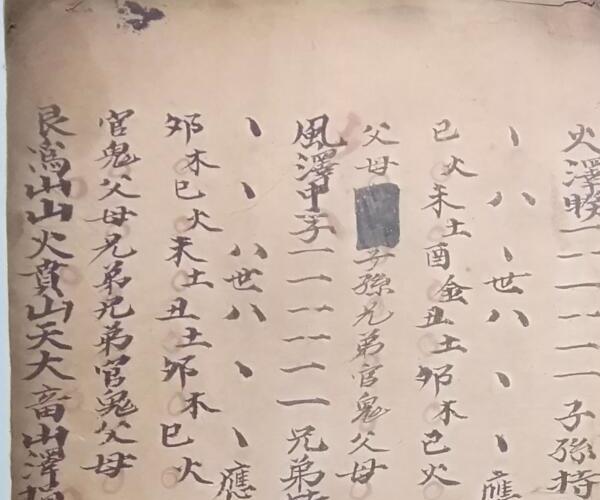 火澤睽一一一一一一子孫持
丶八丶世八丶丶應
巳火未土酉金丑土卯木巳火
父母子孫兄弟官鬼父母
風澤中孚一一一一一一兄弟
丶丶八世八丶丶應
卯木巳火未土丑土卯木巳火
官鬼父母兄弟兄弟官鬼父母
艮爲山山火賁山天大畜山澤